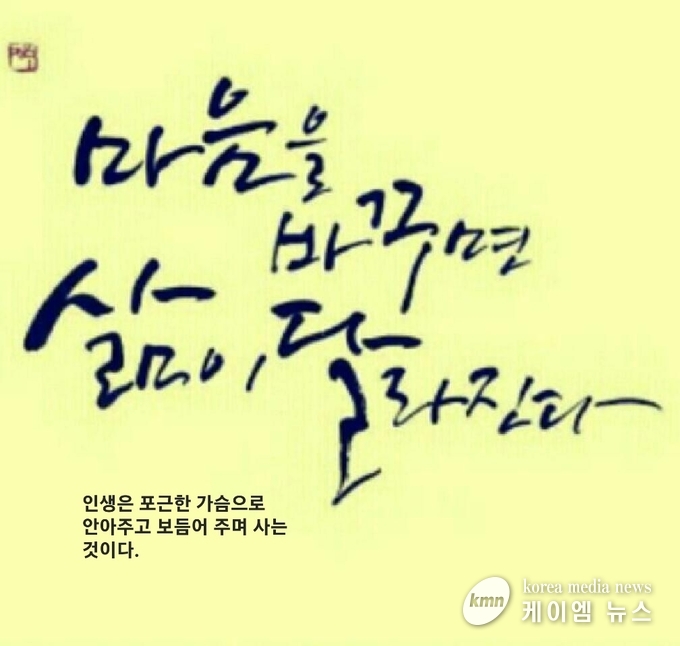 마음을
바꾸면
삶이 달라진다
인생은 포근한 가슴으로
안아주고 보듬어 주며 사는
것이다.
kmn
korea media news
케이엠 뉴스